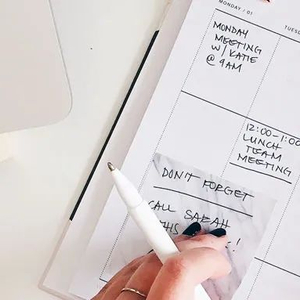 MONDAY / 01
TUES
MONDAY
MEETING
W/ KATIE
@ 9AM
12:00-1:00
LUNCH
TEAM
MEETING
DON'T FORGET
CALL SARAH